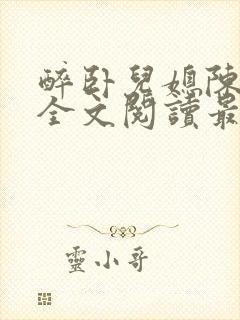 醉臥兒媳陳
全文閱讀最
靈小哥